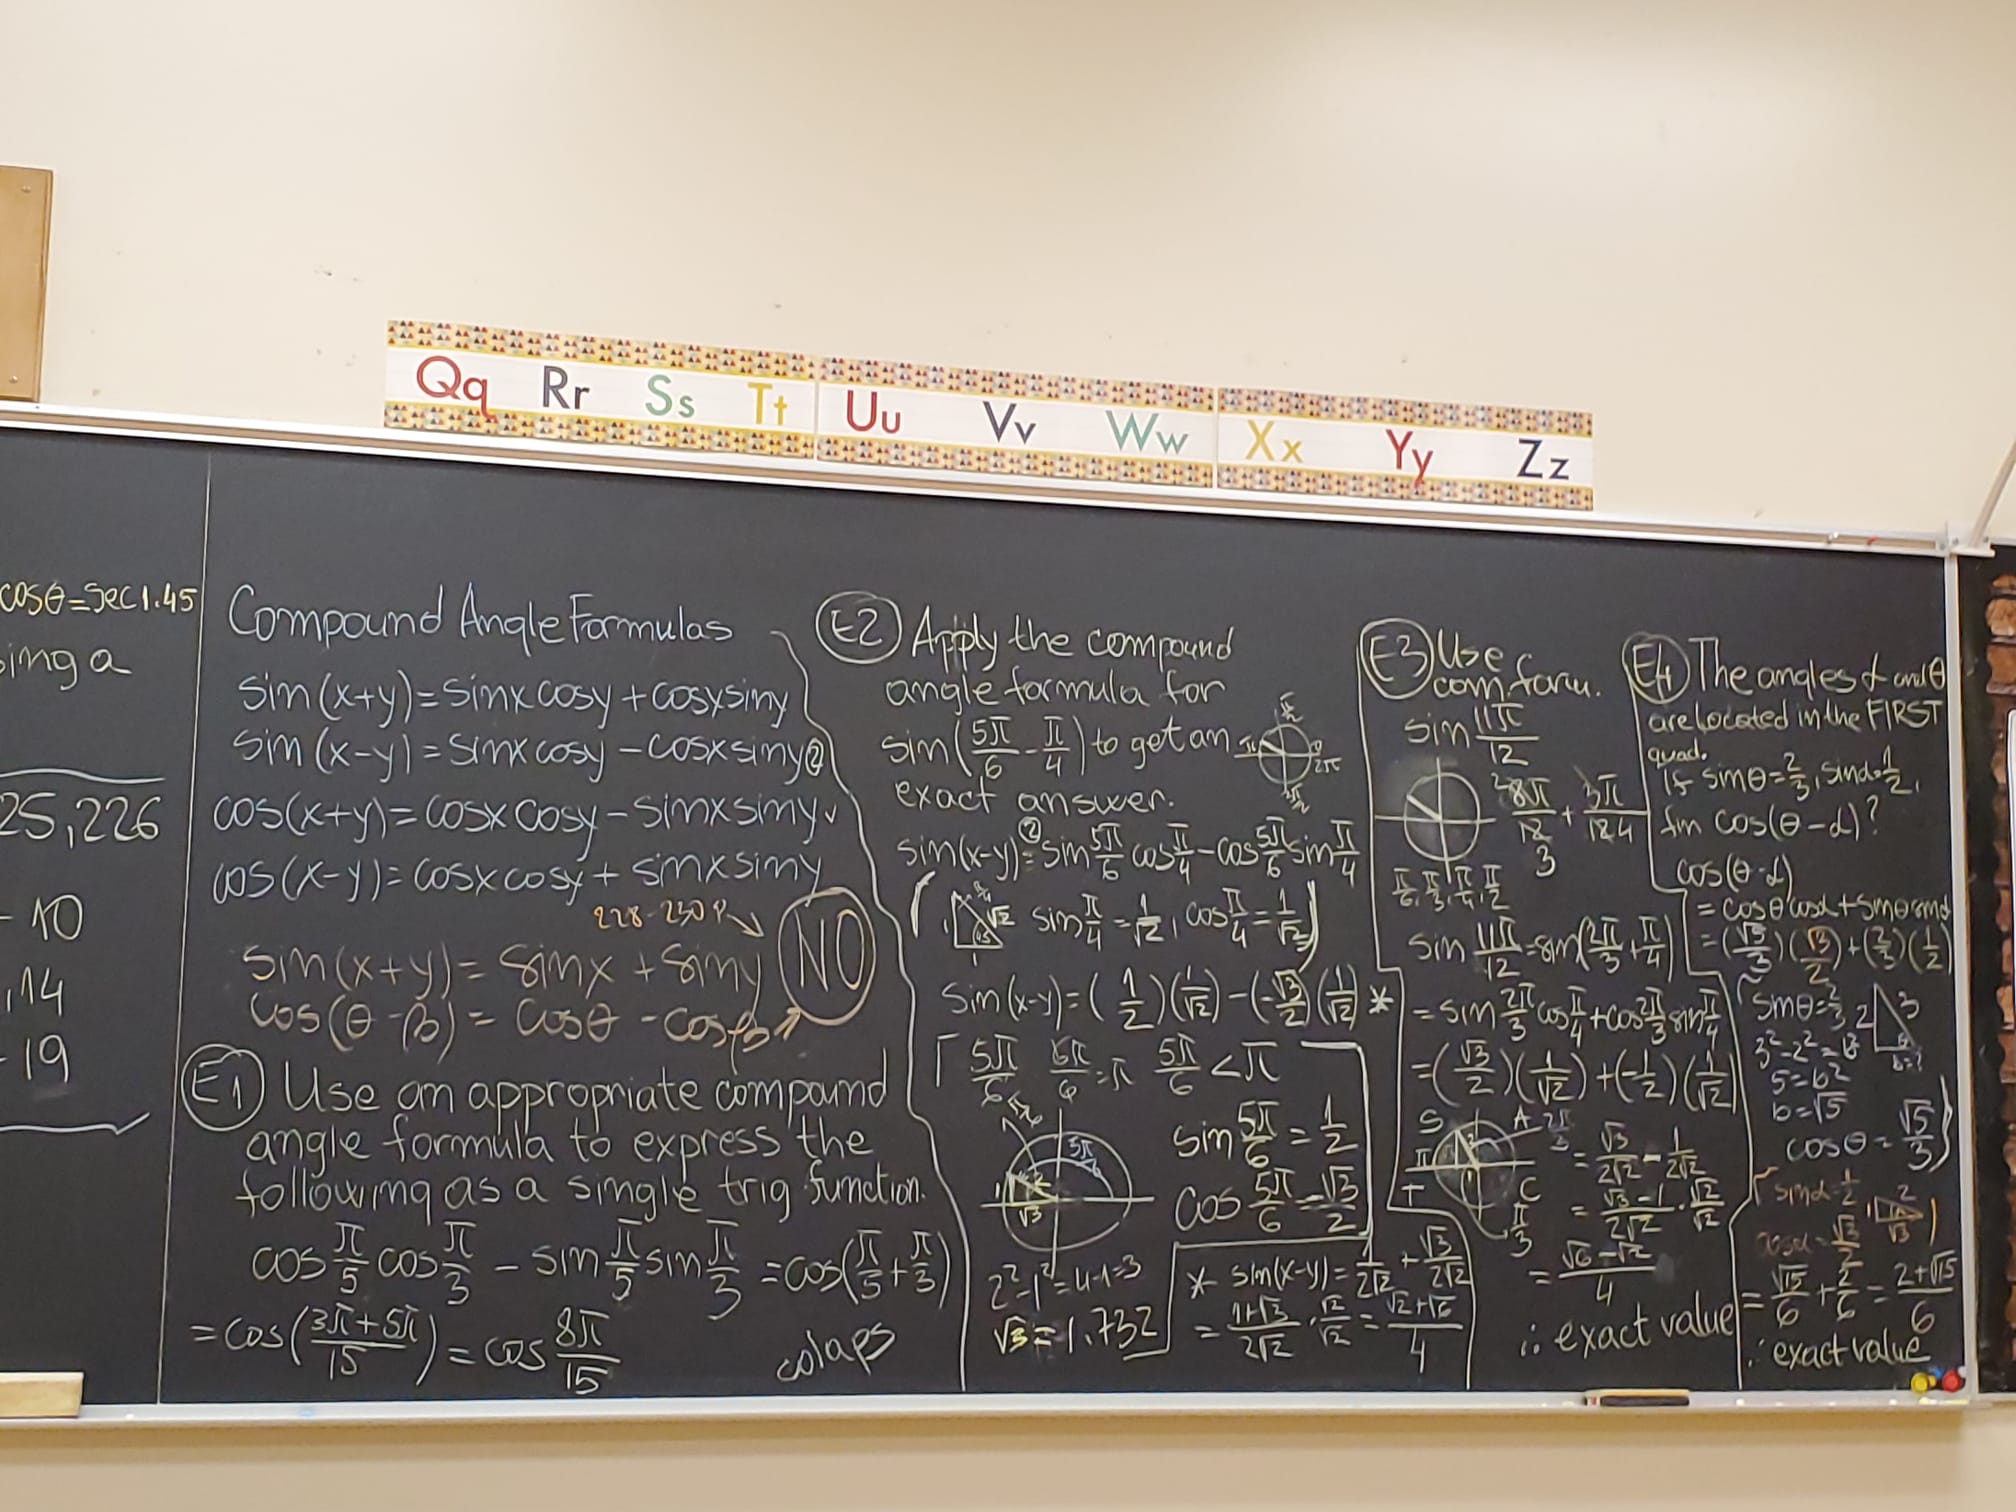 Qq Rr Ss Tt Uu Vv Ww Xx Yy Zz
cosθ=sec1.45
sing a
25,226
-10
,14
-19
Compound Angle Formulas
sin(x+y)=sinxcosy+cosxsiny
sin(x-y)=sinxcosy-cosxsiny②
cos(x+y)=cosxcosy-sinxsiny
cos(x-y)=cosxcosy+sinxsiny
228-230 P
sin(x+y)=sinx+siny NO
cos(θ-β)=cosθ-cosβ
E1 Use an appropriate compound
angle formula to express the
following as a single trig function.
cos π/5 cos π/3 - sin π/5 sin π/3 = cos(π/5+π/3)
=cos((3π+5π)/15)=cos 8π/15
colaps
E2 Apply the compound
angle formula for
sin(5π/6-π/4) to get an
exact answer.
π/2 π 0 2π 3π/2
sin(x-y)②=sin 5π/6 cos π/4 - cos 5π/6 sin π/4
1 √2 45 1 sin π/4=1/√2, cos π/4=1/√2
sin(x-y)=(1/2)(1/√2)-(-√3/2)(1/√2)*
5π/6 6π/6=π 5π/6<π
sin 5π/6=1/2
cos 5π/6=-√3/2
5π/6
√3
2²-1²=4-1=3
√3=1.732
* sin(x-y)=1/2√2+√3/2√2
=(1+√3)/2√2·√2/√2=(√2+√6)/4
E3 Use
com.form.
sin 11π/12
2 8π/12 3+3π/12 4
π/6, π/3, π/4, π/2
sin 11π/12=sin(2π/3+π/4)
=sin 2π/3 cos π/4+cos 2π/3 sin π/4
=(√3/2)(1/√2)+(-1/2)(1/√2)
S A 2π/3
π
T C
π/3
=√3/2√2-1/2√2
=(√3-1)/2√2·√2/√2
=(√6-√2)/4
∴ exact value
E4 The angles α and θ
are located in the FIRST
quad.
If sinθ=2/3, sinα=1/2,
fin cos(θ-α)?
cos(θ-α)
=cosθcosα+sinθsinα
=(√5/3)(√3/2)+(2/3)(1/2)
sinθ=2/3 2 3 b=?
3²-2²=b²
5=b²
b=√5
cosθ=√5/3
sinα=1/2 1 2 √3
cosα=√3/2
=√15/6+2/6=(2+√15)/6
∴ exact value